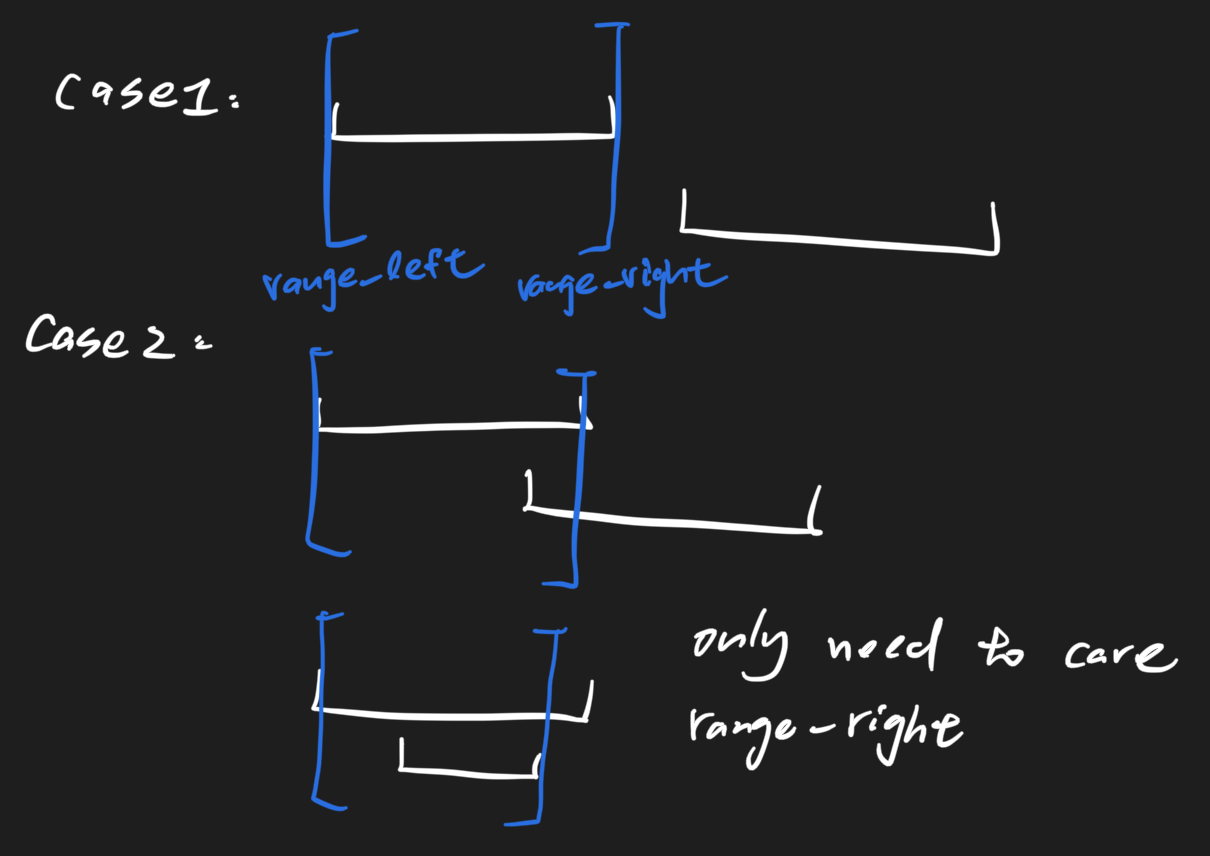 Case1:
range-left
range-right
Case2:
only need to care
range-right